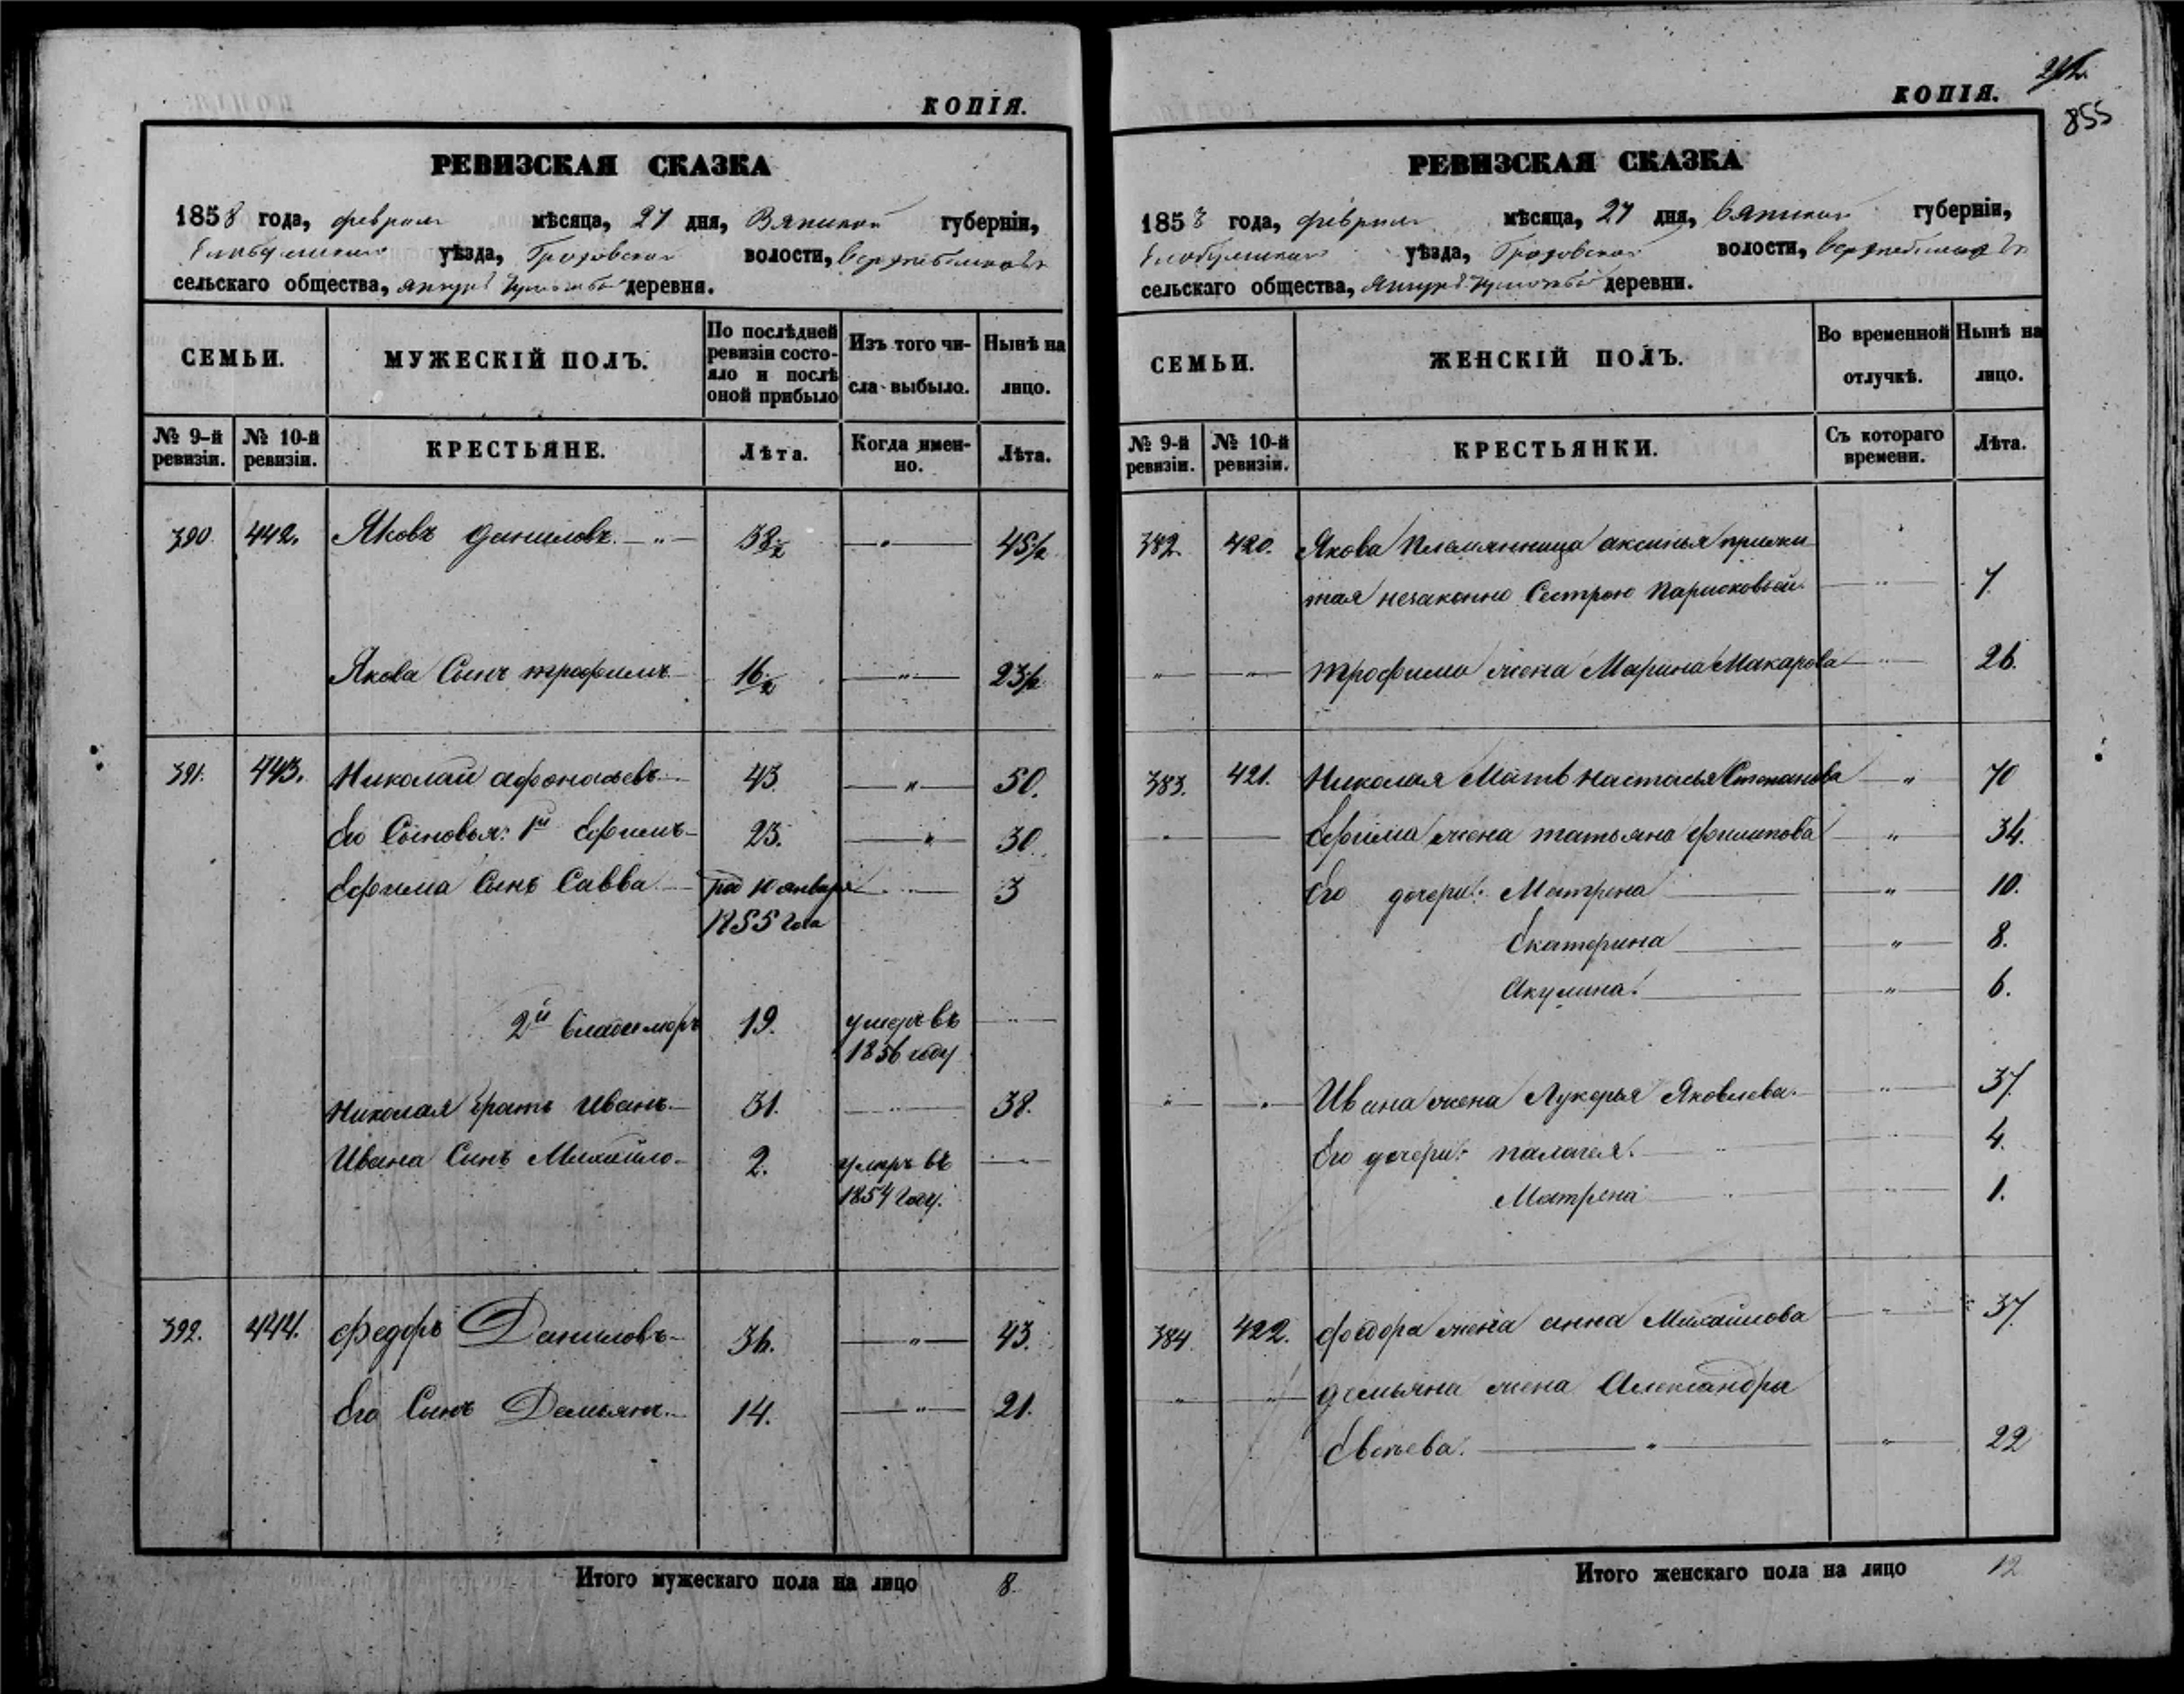 КОПІЯ.
РЕВИЗСКАЯ СКАЗКА
1858 года, февраля мѣсяца, 27 дня, Вятской губерніи,
Елабужскаго уѣзда, Граховской волости,
сельскаго общества, деревня.
СЕМЬИ.
МУЖЕСКІЙ ПОЛЪ.
По послѣдней ревизіи состояло и послѣ оной прибыло
Изъ того числа выбыло.
Нынѣ на лицо.
№ 9-й ревизіи.
№ 10-й ревизіи.
КРЕСТЬЯНЕ.
Лѣта.
Когда именно.
Лѣта.
390. 442. Яковъ Даниловъ 38½ 45½
Якова Сынъ трофимъ 16½ 23½
391. 443. Николай афонасьевъ 43 50.
Его Сыновья: 1й Ефимъ 23. 30
Ефима Сынъ Савва род 10 января 3
1855 года
2й Владимиръ 19. умеръ въ
1856 году
Николая братъ Иванъ 31. 38.
Ивана Сынъ Михайло 2. умеръ въ
1854 году.
392. 444. Федоръ Даниловъ 36. 43.
Его Сынъ Демьянъ 14. 21.
Итого мужескаго пола на лицо 8.
КОПІЯ.
855
РЕВИЗСКАЯ СКАЗКА
1858 года, февраля мѣсяца, 27 дня, Вятской губерніи,
Елабужскаго уѣзда, Граховской волости,
сельскаго общества, деревни.
СЕМЬИ.
ЖЕНСКІЙ ПОЛЪ.
Во временной отлучкѣ.
Нынѣ на лицо.
№ 9-й ревизіи.
№ 10-й ревизіи.
КРЕСТЬЯНКИ.
Съ котораго времени.
Лѣта.
382. 420. Якова племянница аксинья прижи
тая незаконно Сестрою Парасковьей 7.
трофима жена Марина Макарова 26.
383. 421. Николая Мать настасья Степанова 70
Ефима жена татьяна филипова 34.
Его дочери: Матрена 10.
Екатерина 8.
Акулина. 6.
Ивана жена Лукерья Яковлева. 37.
Его дочери: палагея. 4.
Матрена 1.
384 422. федора жена анна Михайлова 37.
демьяна жена Александра
22
Итого женскаго пола на лицо 12